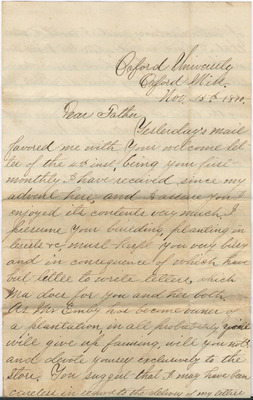 Oxford University
Oxford Miss.
Nov. 15th 1880.
Dear Father
Yesterday's mail
favored me with your welcome let
ter of the 4th inst, being your first
monthly I have received since my
advent here, and I assure you I
enjoyed its contents very much. I
presume your building, planting in
&c, must keep you very busy
and in consequence of which have
but little to write letters, which
Ma does for you and her both.
As Mr Emby has become owner of
a plantation, in all probability, you
will give up farming, will you not
and devote yourself exclusively to the
store. You suggest that I may have been
careless in regard to the delivery of my letters